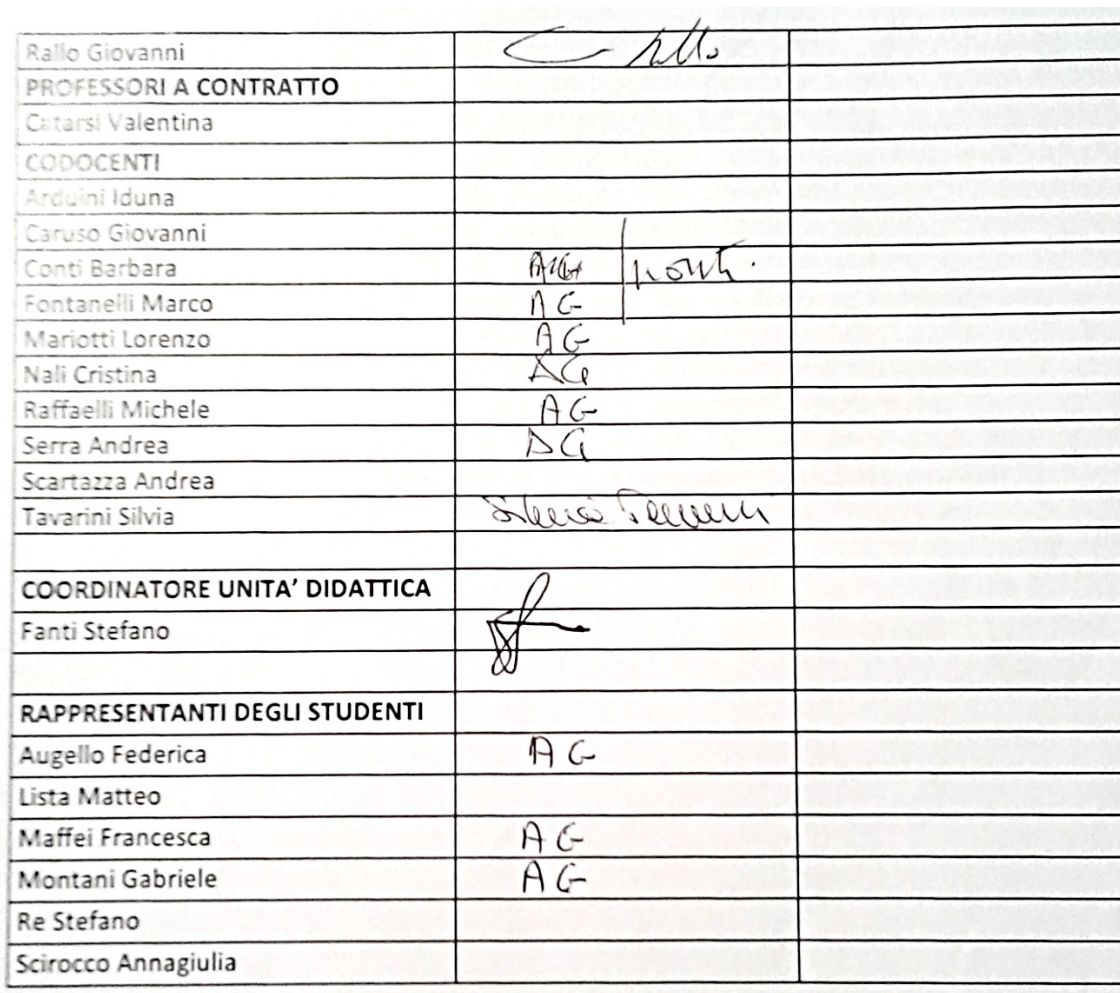 Rallo Giovanni
PROFESSORI A CONTRATTO
Catarsi Valentina
CODOCENTI
Arduini Iduna
Caruso Giovanni
Conti Barbara AG
Fontanelli Marco AG
Mariotti Lorenzo AG
Nali Cristina AG
Raffaelli Michele AG
Serra Andrea AG
Scartazza Andrea
Tavarini Silvia Silvia Tavarini
COORDINATORE UNITA' DIDATTICA
Fanti Stefano
RAPPRESENTANTI DEGLI STUDENTI
Augello Federica AG
Lista Matteo
Maffei Francesca AG
Montani Gabriele AG
Re Stefano
Scirocco Annagiulia